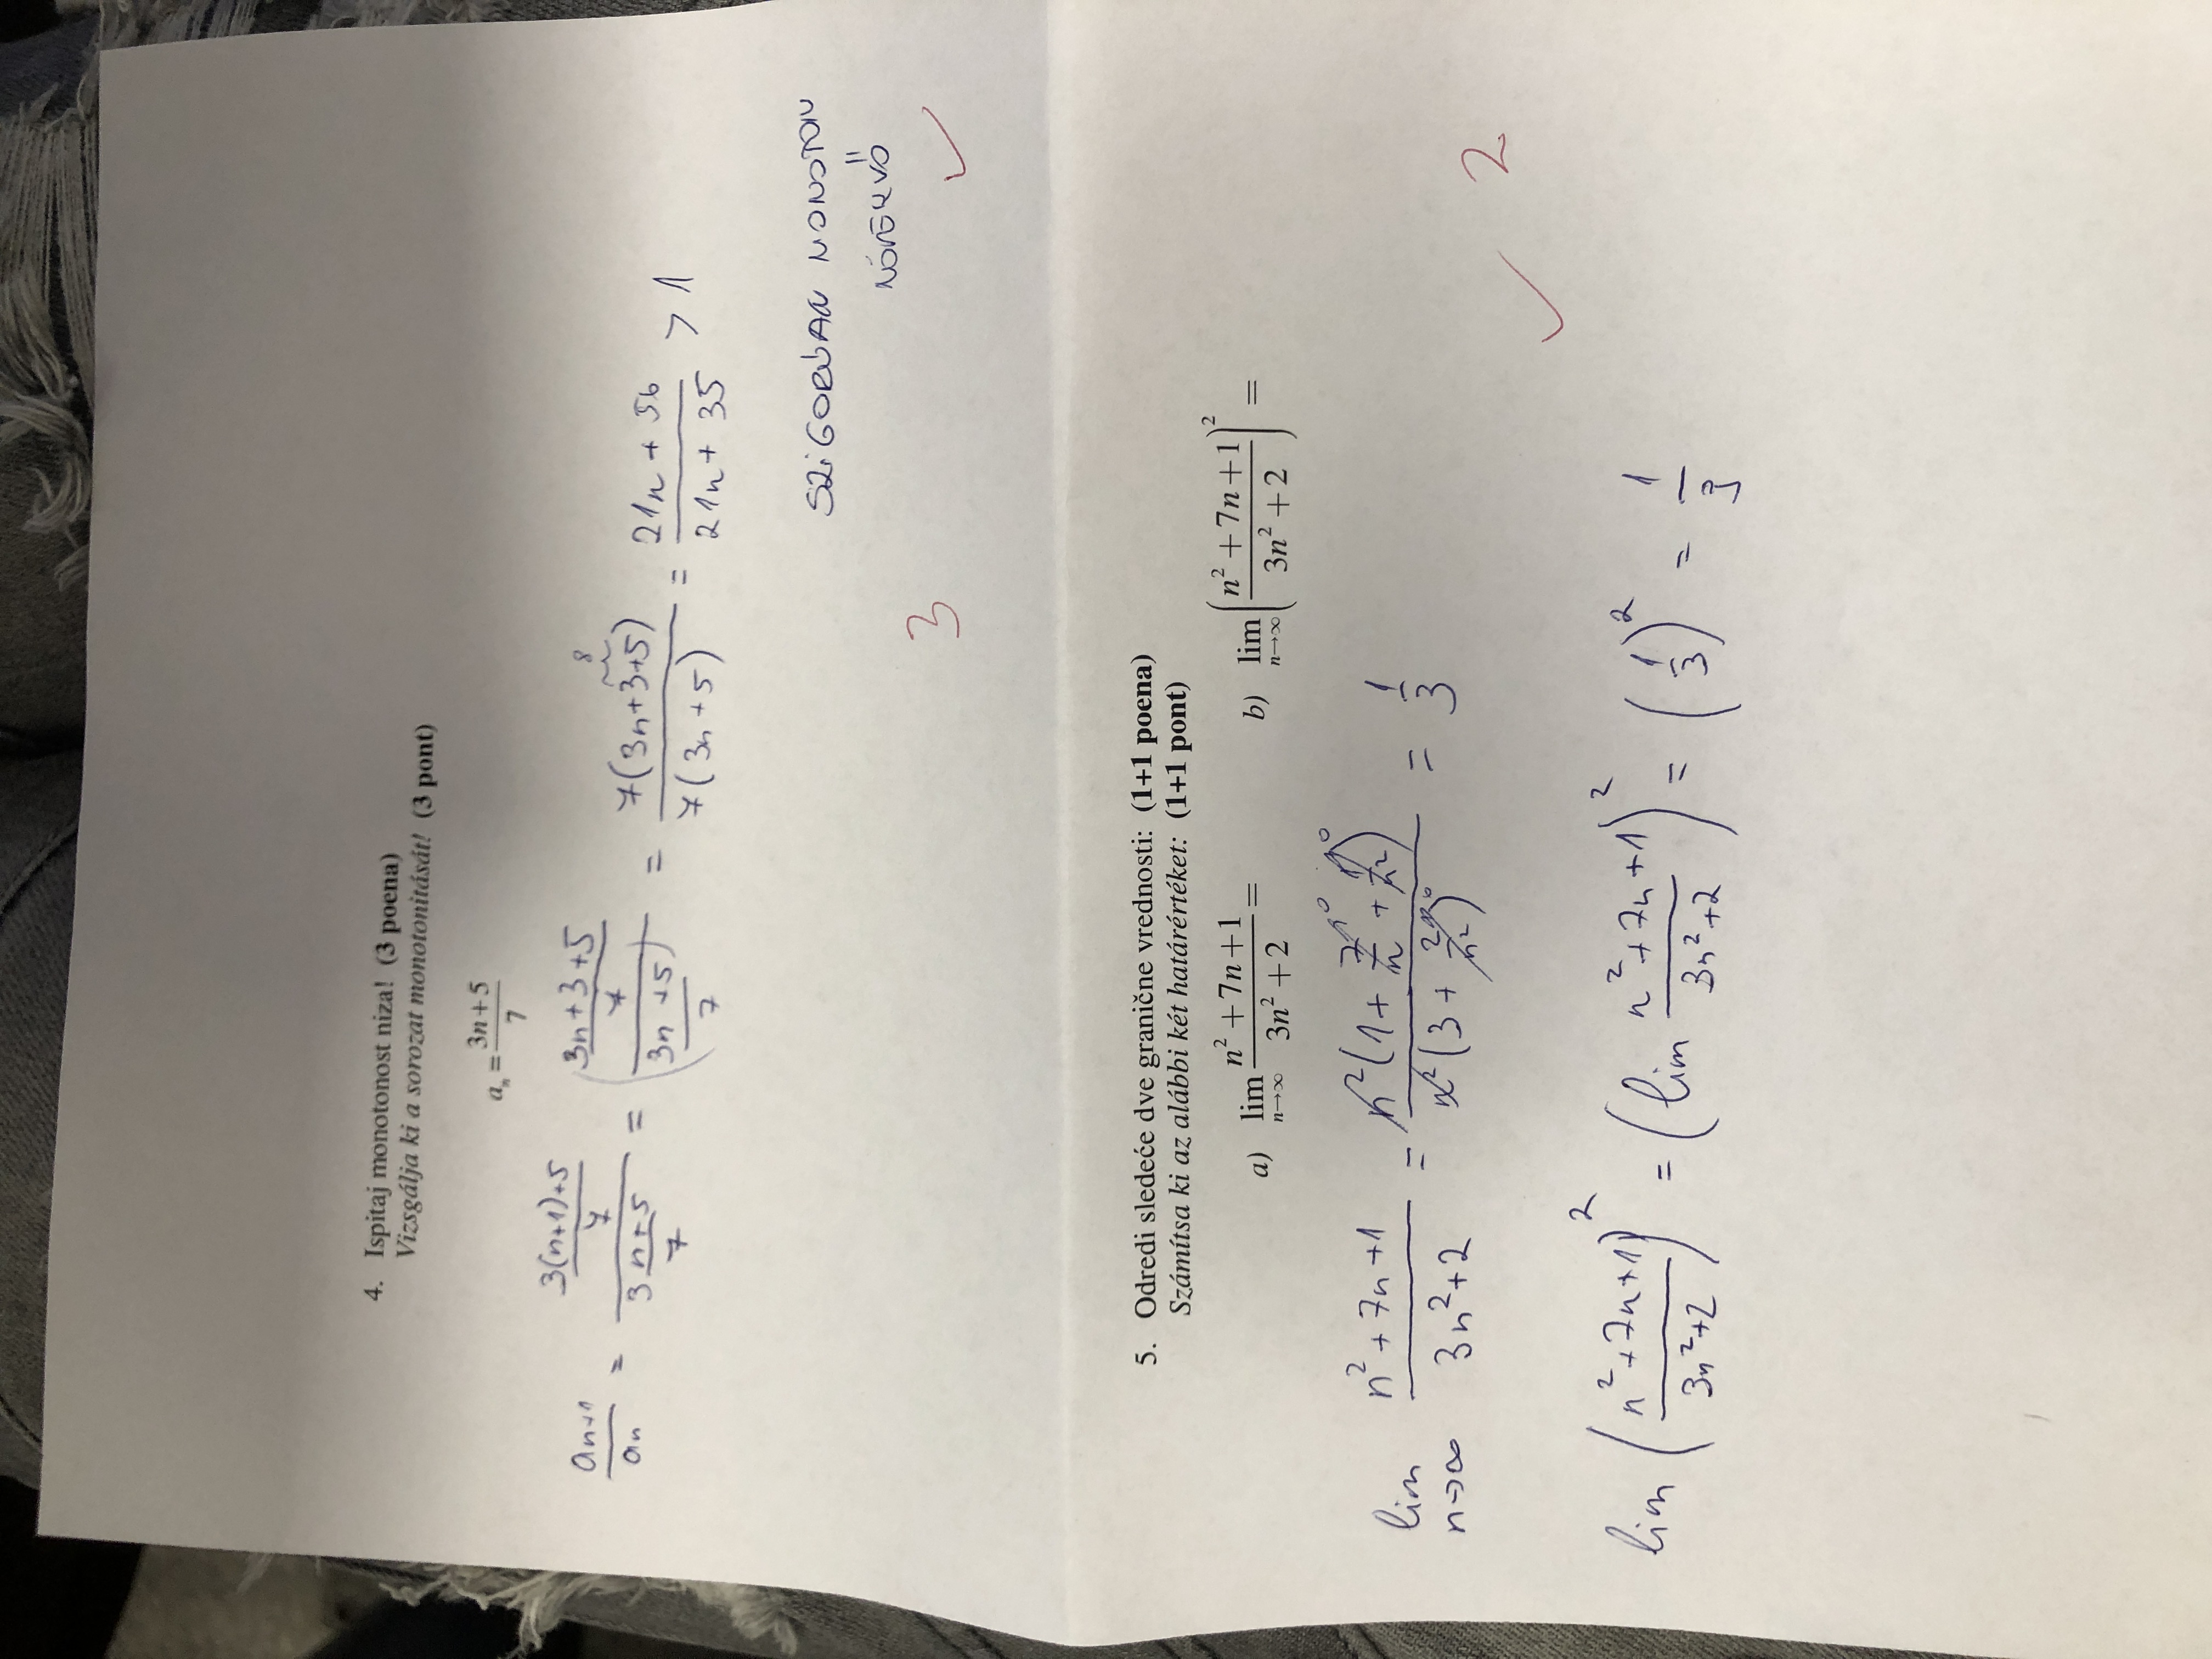 4. Ispitaj monotonost niza! (3 poena)
Vizsgálja ki a sorozat monotonitását! (3 pont)
a_n = (3n+5)/7
a_{n+1}/a_n = ((3(n+1)+5)/7)/((3n+5)/7) = ((3n+3+5)/7)/((3n+5)/7) = 7(3n+3+5)/7(3n+5) = (21n+56)/(21n+35) > 1
8
SZIGORÚAN MONOTON
NÖVEKVŐ
3 ✓
5. Odredi sledeće dve granične vrednosti: (1+1 poena)
Számítsa ki az alábbi két határértéket: (1+1 pont)
a) lim n→∞ (n²+7n+1)/(3n²+2) = b) lim n→∞ ((n²+7n+1)/(3n²+2))² =
lim n→∞ (n²+7n+1)/(3n²+2) = n²(1+7/n+1/n²)/n²(3+2/n²) = 1/3
✓ 2
lim ((n²+7n+1)/(3n²+2))² = (lim (n²+7n+1)/(3n²+2))² = (1/3)² = 1/3